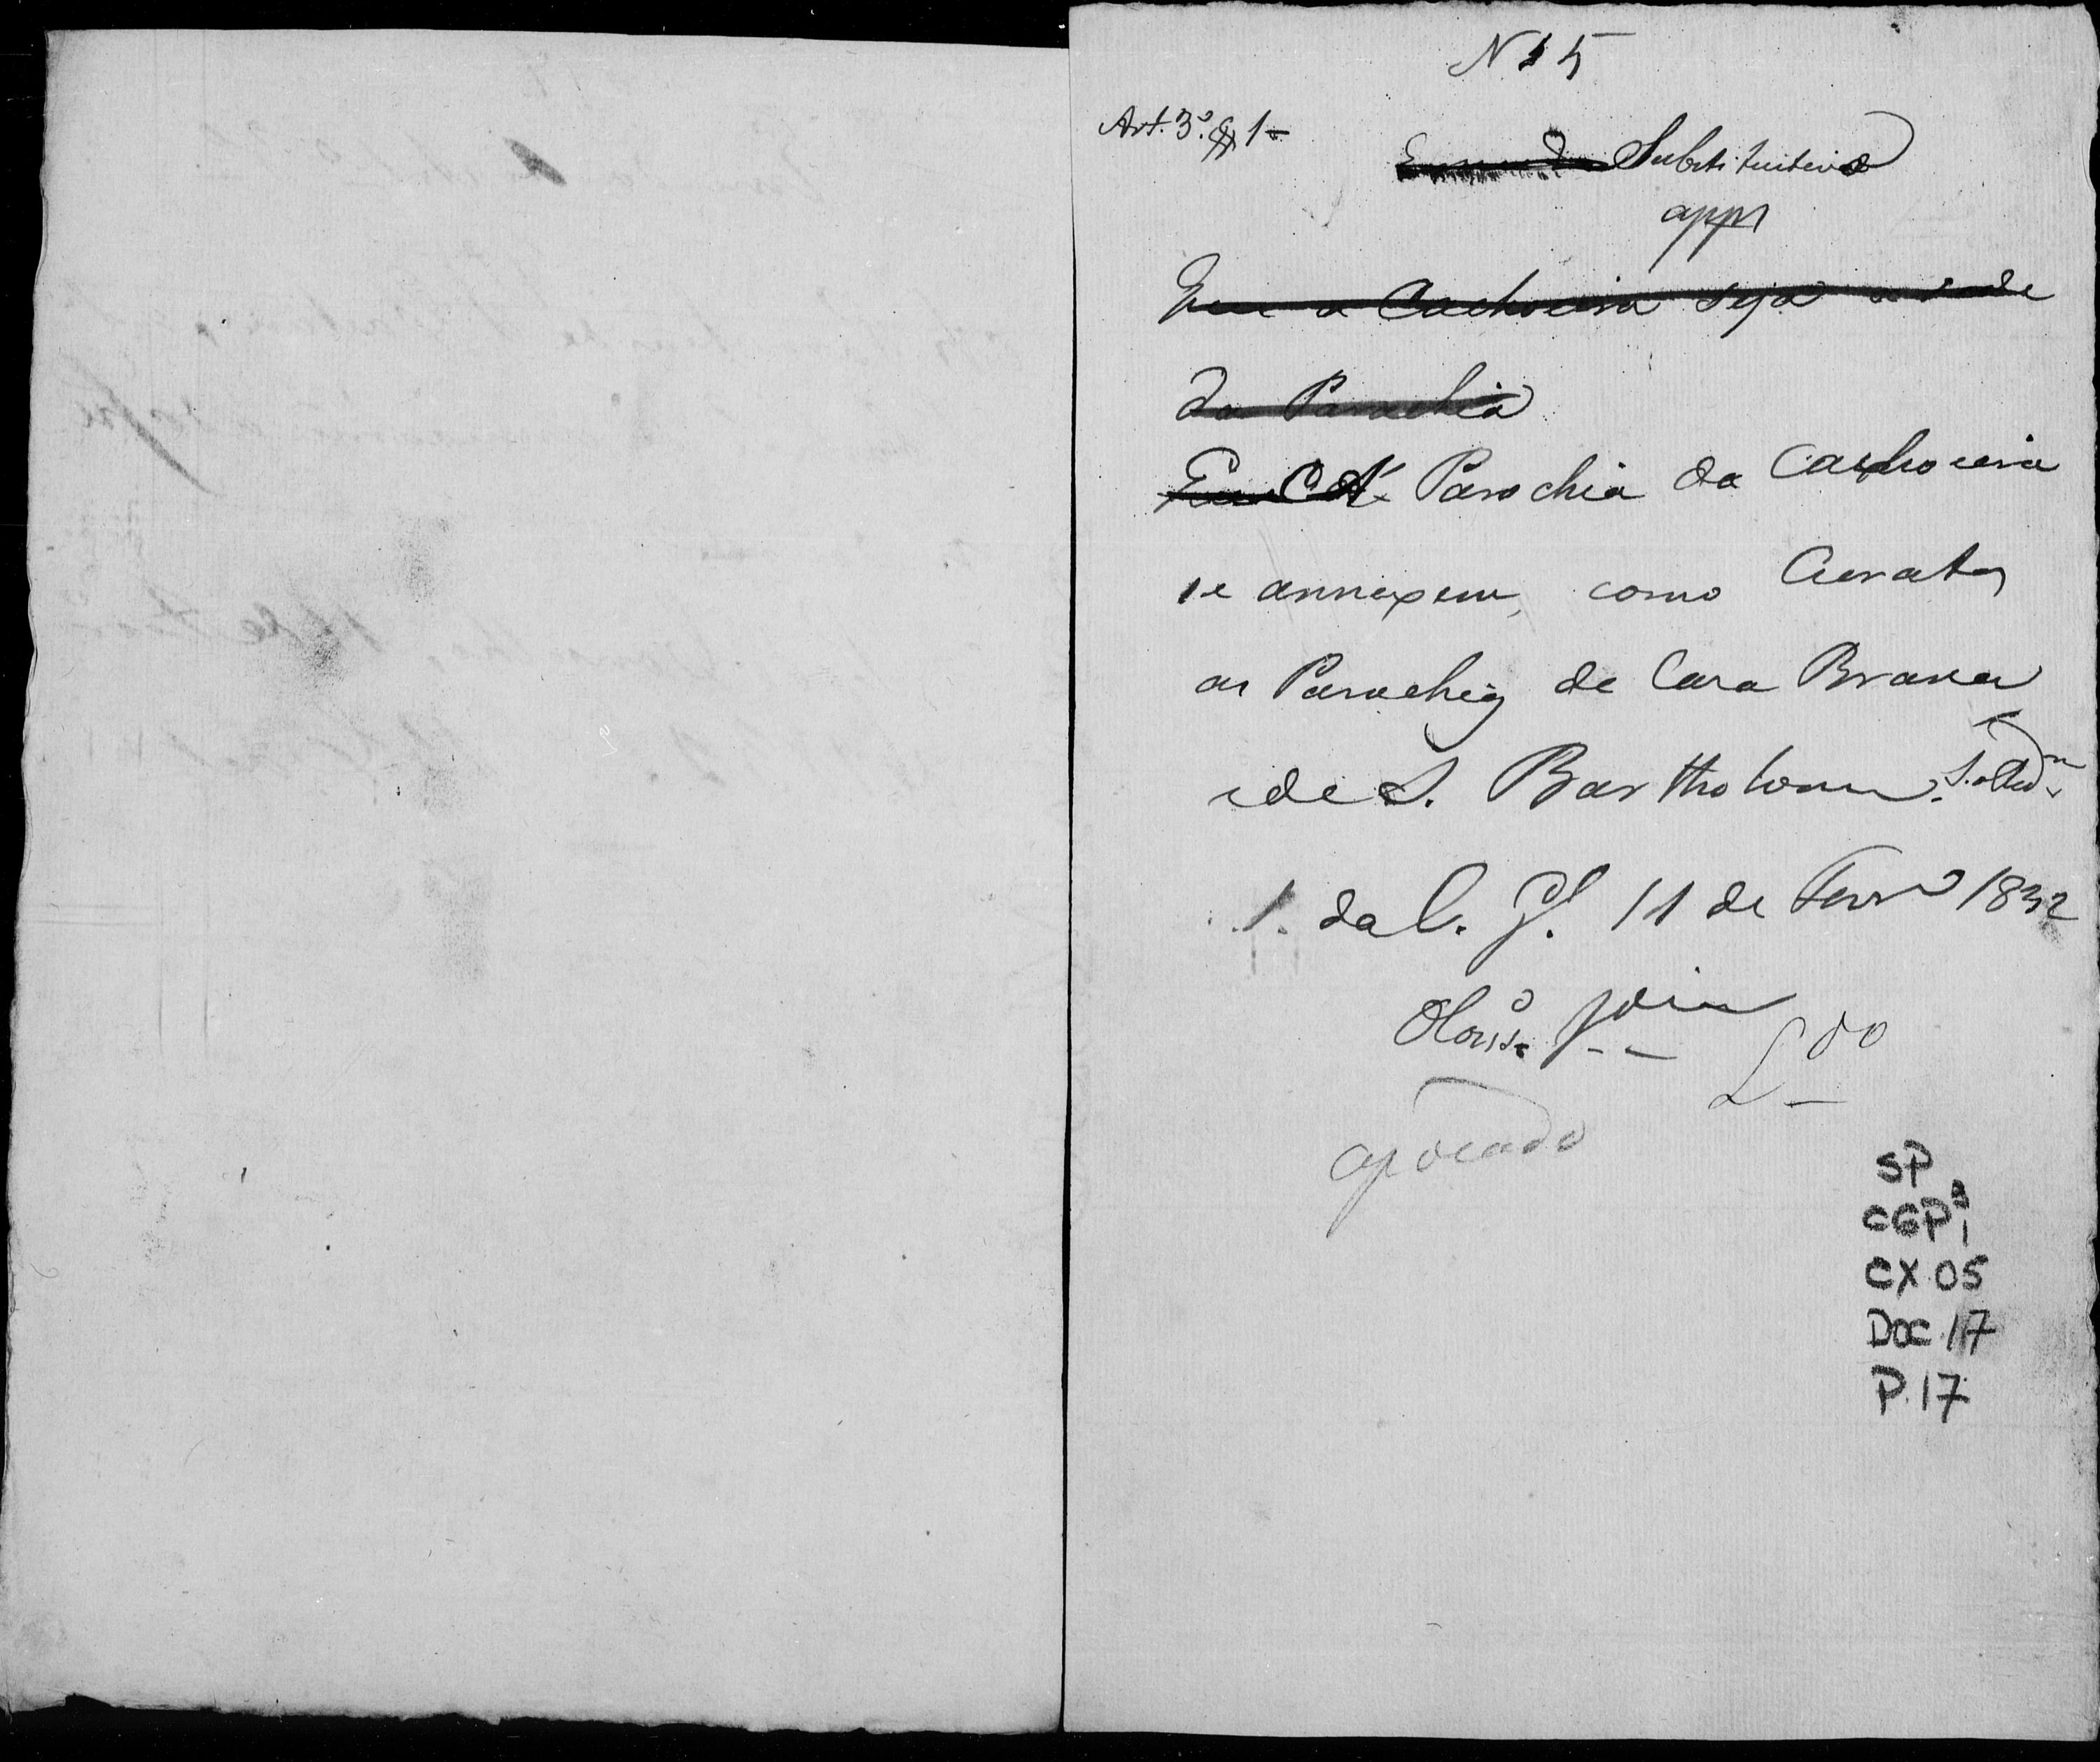 N 15
Art. 3º. § 1º
Emenda Substitutiva
appr
Que a Cachoeira seja a sede
da Parochia
Que A' Parochia da Cachoeira
se annexem, como Curatos
as Parochias de Casa Branca
e de S. Bartholomeu.
S. da C. G. 11 de Fevrº 1832
apoiado
SP
CGP 1
CX 05
DOC 17
P. 17